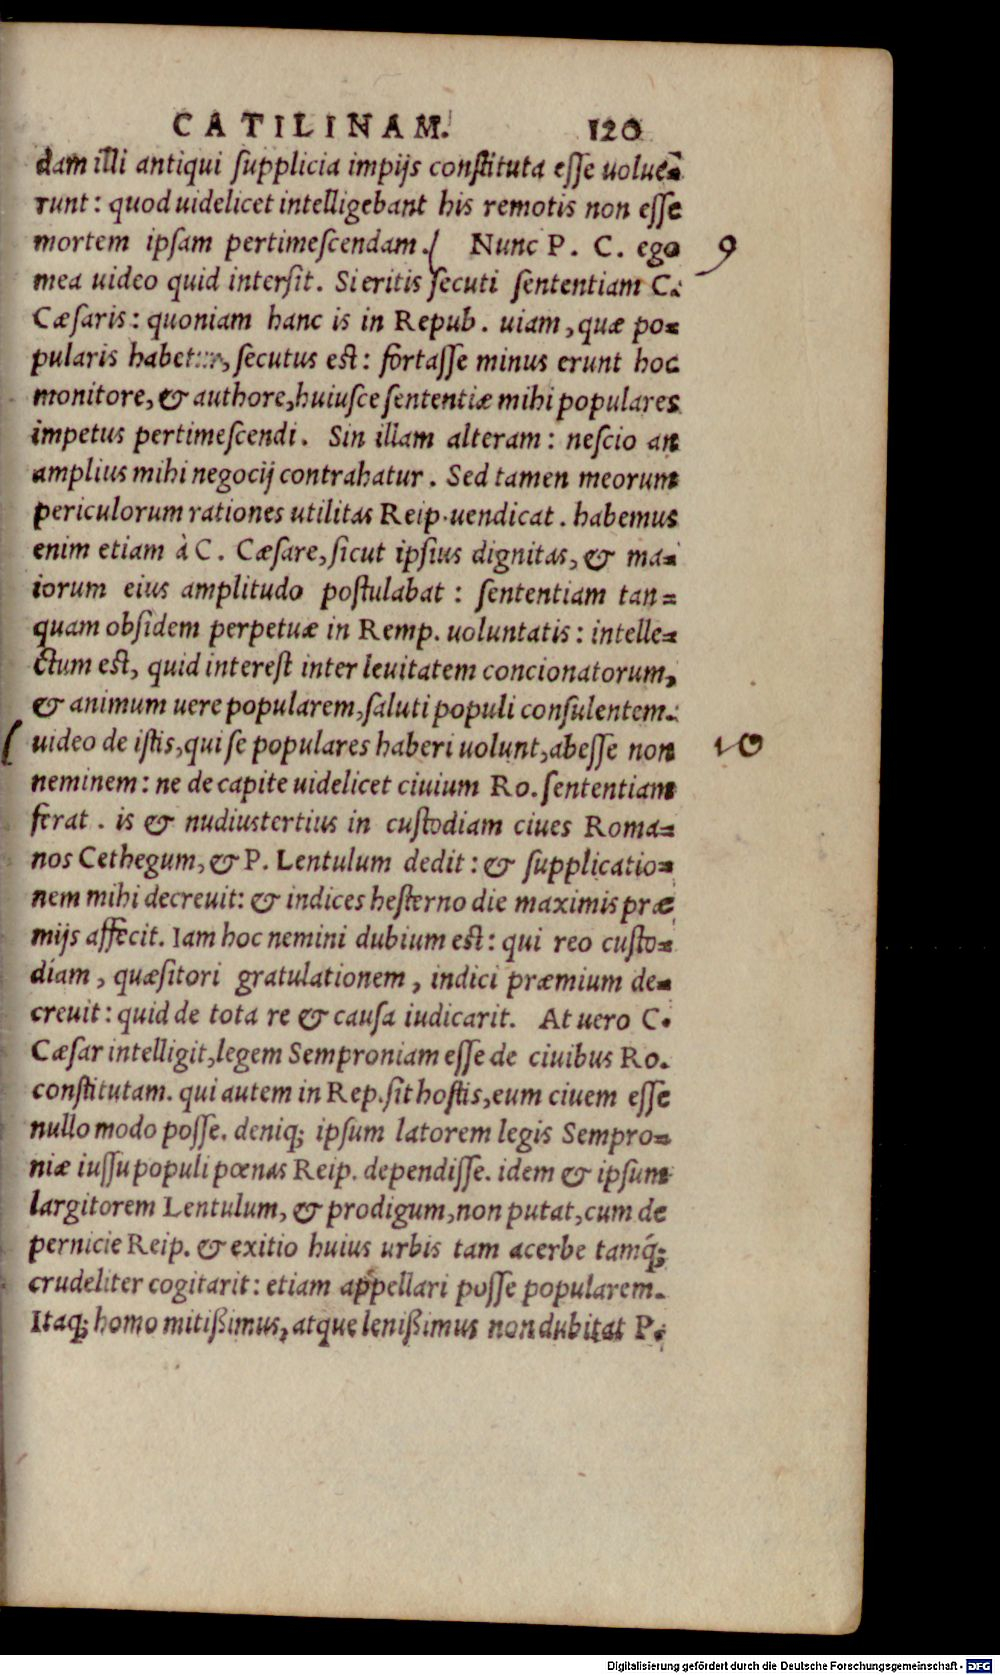 CATILINAM. 120
dam illi antiqui ſupplicia impijs conſtituta eſſe uolue=
runt: quod uidelicet intelligebant his remotis non eſſe
mortem ipſam pertimeſcendam. Nunc P. C. ego 9
mea uideo quid interſit. Si eritis ſecuti ſententiam C.
Cæſaris: quoniam hanc is in Repub. uiam, quæ po=
pularis habetur, ſecutus eſt: fortaſſe minus erunt hoc
monitore, & authore, huiuſce ſententiæ mihi populares
impetus pertimeſcendi. Sin illam alteram: neſcio an
amplius mihi negocij contrahatur. Sed tamen meorum
periculorum rationes utilitas Reip. uendicat. habemus
enim etiam à C. Cæſare, ſicut ipſius dignitas, & ma=
iorum eius amplitudo poſtulabat: ſententiam tan=
quam obſidem perpetuæ in Remp. uoluntatis: intelle=
ctum eſt, quid intereſt inter leuitatem concionatorum,
& animum uere popularem, ſaluti populi conſulentem.
uideo de iſtis, qui ſe populares haberi uolunt, abeſſe non 10
neminem: ne de capite uidelicet ciuium Ro. ſententiam
ferat. is & nudiustertius in cuſtodiam ciues Roma=
nos Cethegum, & P. Lentulum dedit: & ſupplicatio=
nem mihi decreuit: & indices heſterno die maximis præ
mijs affecit. Iam hoc nemini dubium eſt: qui reo cuſto=
diam, quæſitori gratulationem, indici præmium de=
creuit: quid de tota re & cauſa iudicarit. At uero C.
Cæſar intelligit, legem Semproniam eſſe de ciuibus Ro.
conſtitutam. qui autem in Rep. ſit hoſtis, eum ciuem eſſe
nullo modo poſſe. deniq; ipſum latorem legis Sempro=
niæ iuſſu populi pœnas Reip. dependiſſe. idem & ipſum
largitorem Lentulum, & prodigum, non putat, cum de
pernicie Reip. & exitio huius urbis tam acerbe tamq́;
crudeliter cogitarit: etiam appellari poſſe popularem.
Itaq; homo mitißimus, atque lenißimus non dubitat P.
Digitalisierung gefördert durch die Deutsche Forschungsgemeinschaft - DFG